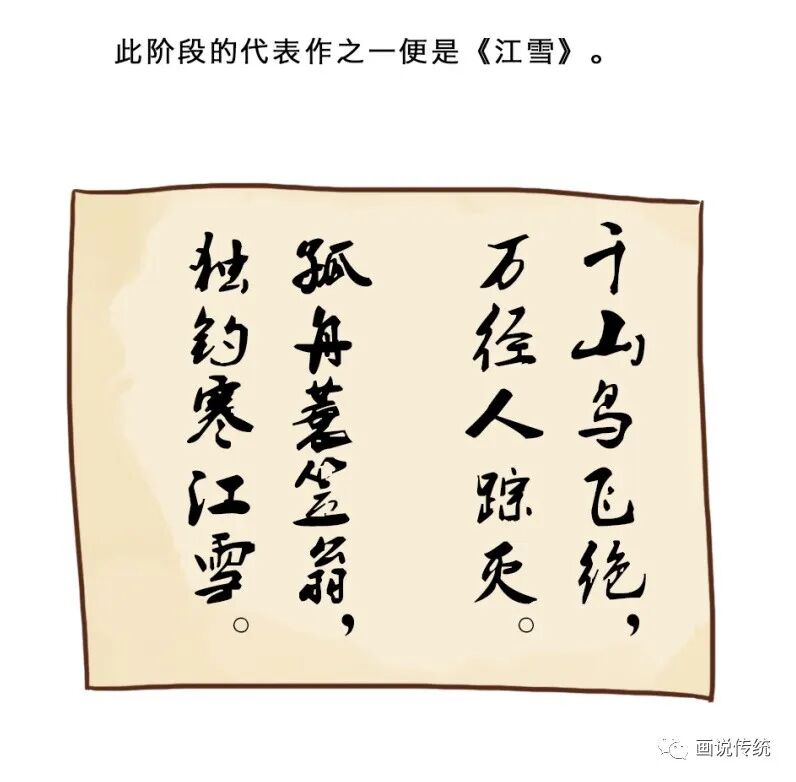 此阶段的代表作之一便是《江雪》。
千山鸟飞绝，
万径人踪灭。
孤舟蓑笠翁，
独钓寒江雪。
画说传统